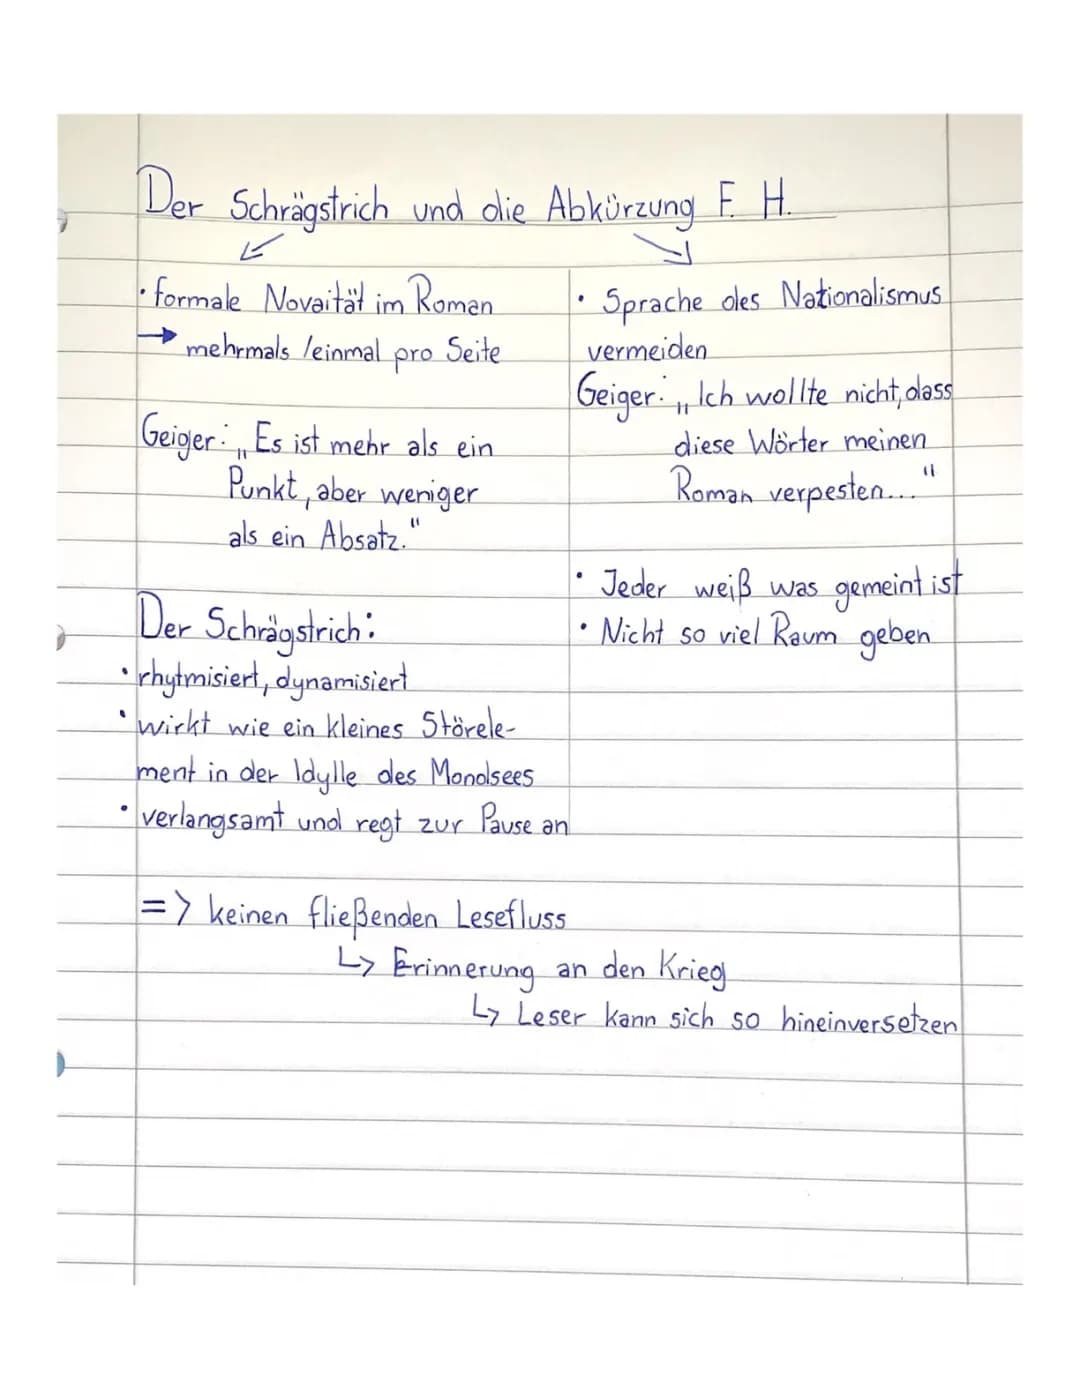 Der Schrägstrich und die Abkürzung F. H.
· formale Novaität im Roman
→ mehrmals /einmal pro Seite
Geiger: „Es ist mehr als ein
Punkt, aber weniger
als ein Absatz."
Der Schrägstrich:
· rhytmisiert, dynamisiert
· wirkt wie ein kleines Störele-
ment in der Idylle des Mondsees
· verlangsamt und regt zur Pause an
· Sprache des Nationalismus
vermeiden
Geiger: „Ich wollte nicht, dass
diese Wörter meinen
Roman verpesten..."
· Jeder weiß was gemeint ist
· Nicht so viel Raum geben
=> keinen fließenden Lesefluss
↳ Erinnerung an den Krieg
↳ Leser kann sich so hineinversetzen